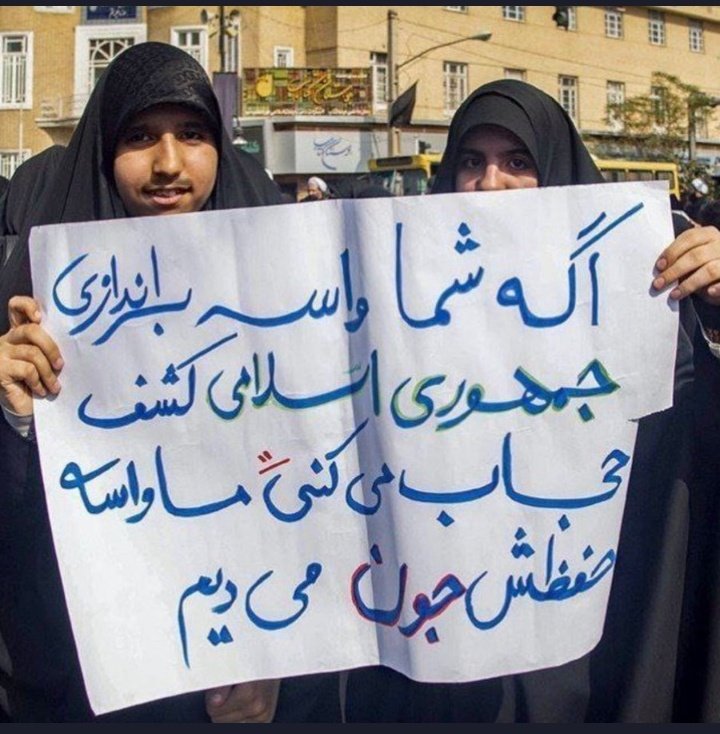 اگه شما واسه براندازی
جمهوری اسلامی کشف
حجاب می کنی ما واسه
حفظش جون می دیم